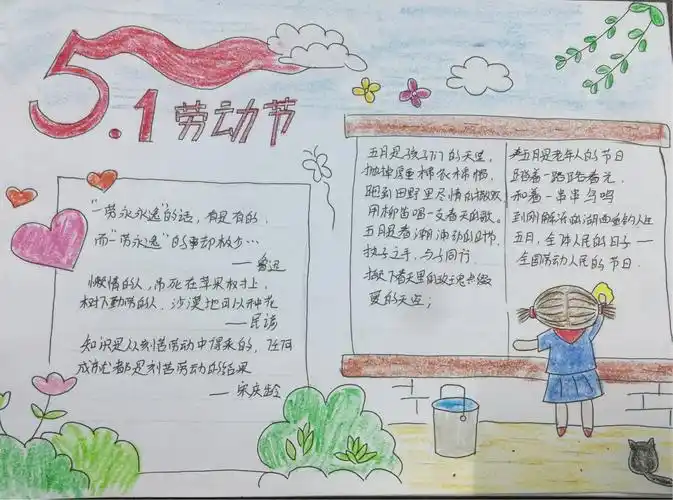 5.1劳动节
"一劳永永逸"的话,有是有的,
而"一劳永逸"的事却极少…
——鲁迅
懒惰的人,吊死在苹果树上,
树下勤劳的人,沙漠地可以种花
——民谚
知识是从刻苦劳动中得来的,任何
成就都是刻苦劳动的结果
——宋庆龄
五月是孩子们的天堂,
抛掉厚重棉衣棉帽,
跑到田野里尽情的撒欢
用柳笛唱一支春天的歌。
五月是春潮涌动的时节,
执子之手,与子同行
撒下春天里的
爱的天空;
五月是老年人的节日
踏着一路踏春光
和着一串串鸟鸣
到刚解冻的湖面
五月,全体人民的日子——
全国劳动人民的节日.